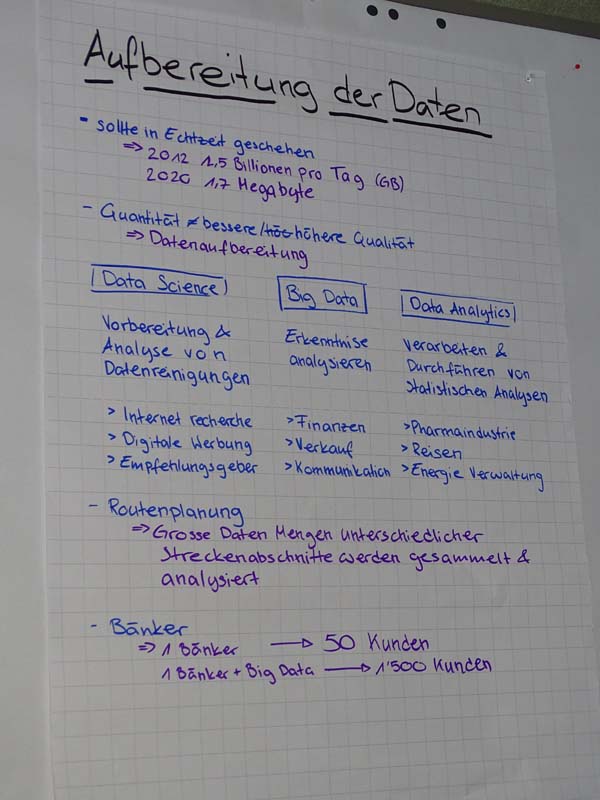 Aufbereitung der Daten
- sollte in Echtzeit geschehen
⇒ 2012 1,5 Billionen pro Tag (GB)
2020 1,7 Megabyte
- Quantität ≠ bessere/höhere Qualität
⇒ Datenaufbereitung
Data Science
Vorbereitung &
Analyse von
Datenreinigungen
> Internet recherche
> Digitale Werbung
> Empfehlungsgeber
Big Data
Erkenntnise
analysieren
> Finanzen
> Verkauf
> Kommunikation
Data Analytics
Verarbeiten &
Durchführen von
Statistischen Analysen
> Pharmaindustrie
> Reisen
> Energie Verwaltung
- Routenplanung
⇒ Grosse Daten Mengen unterschiedlicher
Streckenabschnitte werden gesammelt &
analysiert
- Bänker
⇒ 1 Bänker → 50 Kunden
1 Bänker + Big Data → 1'500 Kunden